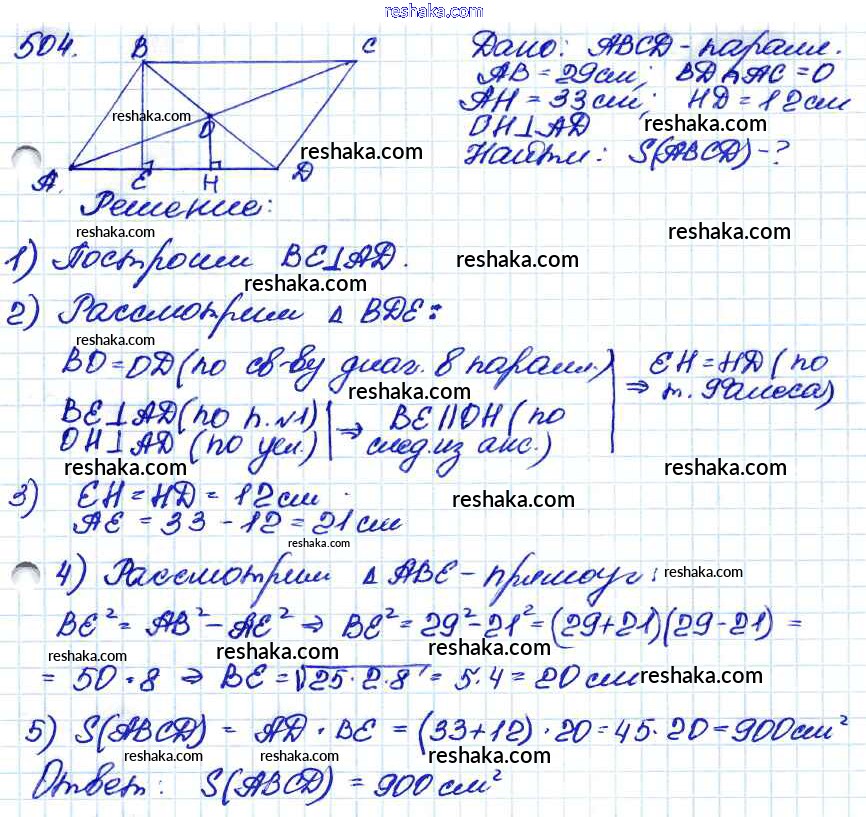 reshaka.com
504.
B
C
O
A.
E
H
D
Дано: ABCD - паралл.
AB = 29 см; BD ∩ AC = O
AH = 33 см; HD = 12 см
OH ⊥ AD
Найти: S(ABCD) - ?
reshaka.com
reshaka.com
reshaka.com
reshaka.com
Решение:
reshaka.com
reshaka.com
1) Построим BE ⊥ AD.
reshaka.com
reshaka.com
2) Рассмотрим Δ BDE:
reshaka.com
reshaka.com
BO = OD (по св-ву диаг. в паралл.)
reshaka.com
BE ⊥ AD (по п. №1)
OH ⊥ AD (по усл.)
⇒ BE || OH (по
след. из акс.)
⇒ EH = HD (по
т. Фалеса)
reshaka.com
reshaka.com
reshaka.com
3) EH = HD = 12 см
reshaka.com
AE = 33 - 12 = 21 см
reshaka.com
4) Рассмотрим Δ ABE - прямоуг:
reshaka.com
BE² = AB² - AE² ⇒ BE² = 29² - 21² = (29+21)(29-21) =
reshaka.com
reshaka.com
reshaka.com
= 50 · 8 ⇒ BE = √25·2·8 = 5·4 = 20 см
reshaka.com
reshaka.com
reshaka.com
5) S(ABCD) = AD · BE = (33+12) · 20 = 45 · 20 = 900 см²
reshaka.com
reshaka.com
reshaka.com
Ответ: S(ABCD) = 900 см²